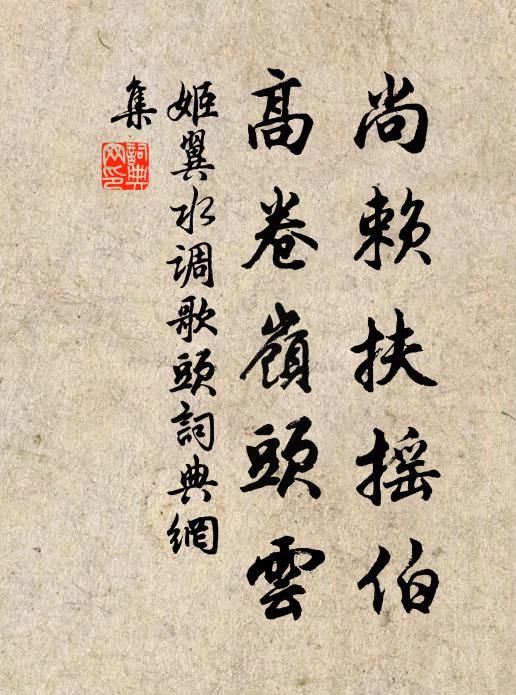 尚賴扶搖伯
高卷嶺頭雲
姬翼水調歌頭詞典網
集
詞典
網印